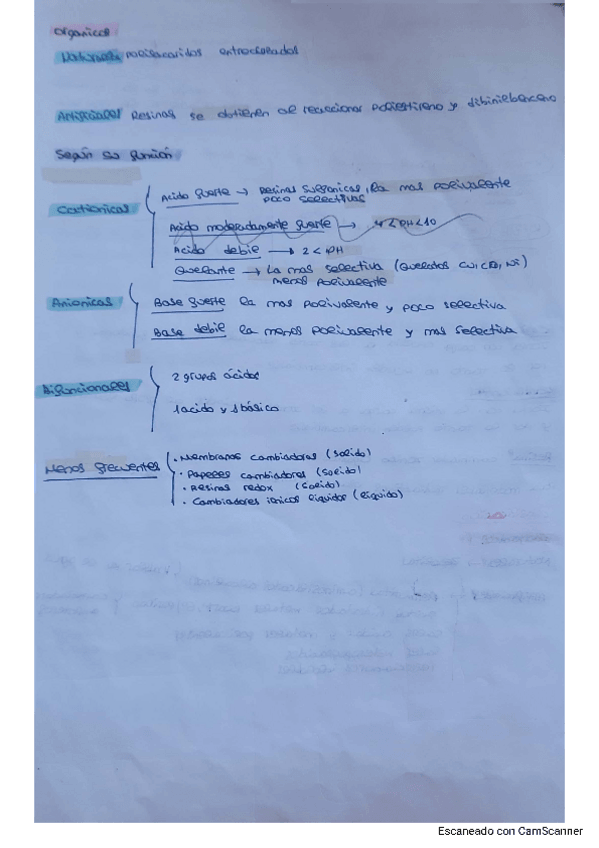 Organicos
Naturales polisacaridos entrecruzados
Artificiales Resinas se obtienen al reaccionar poliestireno y dibinilbenceno
Según su función
Cationicas
Acido fuerte → Resinas sulfonicas, la mas polivalente
poco selectivas
Acido moderadamente fuerte → 4<pH<10
Acido debile → 2<pH
Quelante → La mas selectiva (Quelatos Cu, Co, Ni)
menos polivalente
Anionicas
Base fuerte la mas polivalente y poco selectiva
Base debile la menos polivalente y mas selectiva
Bifuncionales
2 grupos ácidos
1 acido y 1 básico
Menos frecuentes
· Membranas cambiadoras (solido)
· Papeles cambiadores (solido)
· Resinas redox (solido)
· Cambiadores iónicos liquidos (liquido)
Escaneado con CamScanner